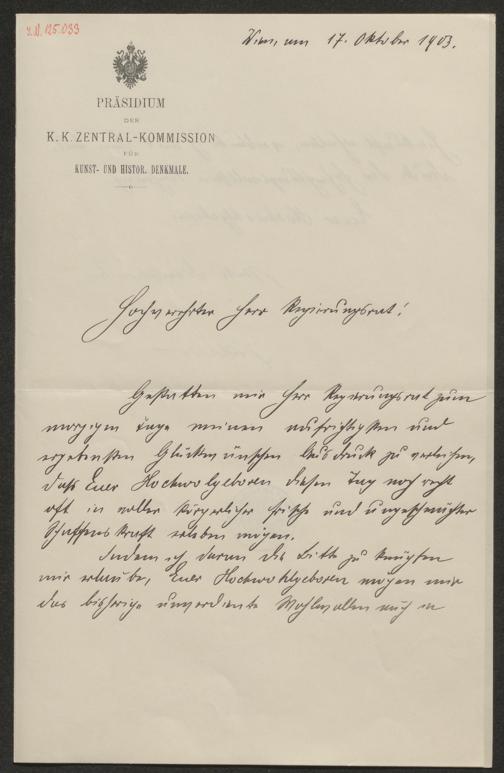 I.N. 125.033
Wien, am 17. Oktober 1903.
PRÄSIDIUM
DER
K. K. ZENTRAL-KOMMISSION
FÜR
KUNST- UND HISTOR. DENKMALE.
Hochverehrter Herr Regierungsrat!
Gestatten mir Herr Regierungsrat zum
morgigen Tage meinen aufrichtigsten und
ergebensten Glückwünschen Ausdruck zu verleihen,
daß Euer Hochwolgeboren diesen Tag noch recht
oft in voller körperlicher Frische und ungeschwächter
Schaffenskraft erleben mögen.
Indem ich daran die Bitte zu knüpfen
mir erlaube, Euer Hochwohlgeboren mögen mir
das bisherige unverdiente Wohlwollen auch in